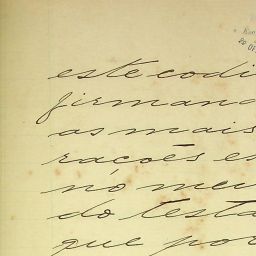 este codi
firmand
as mais
rações es
nó meu
do testa
que por